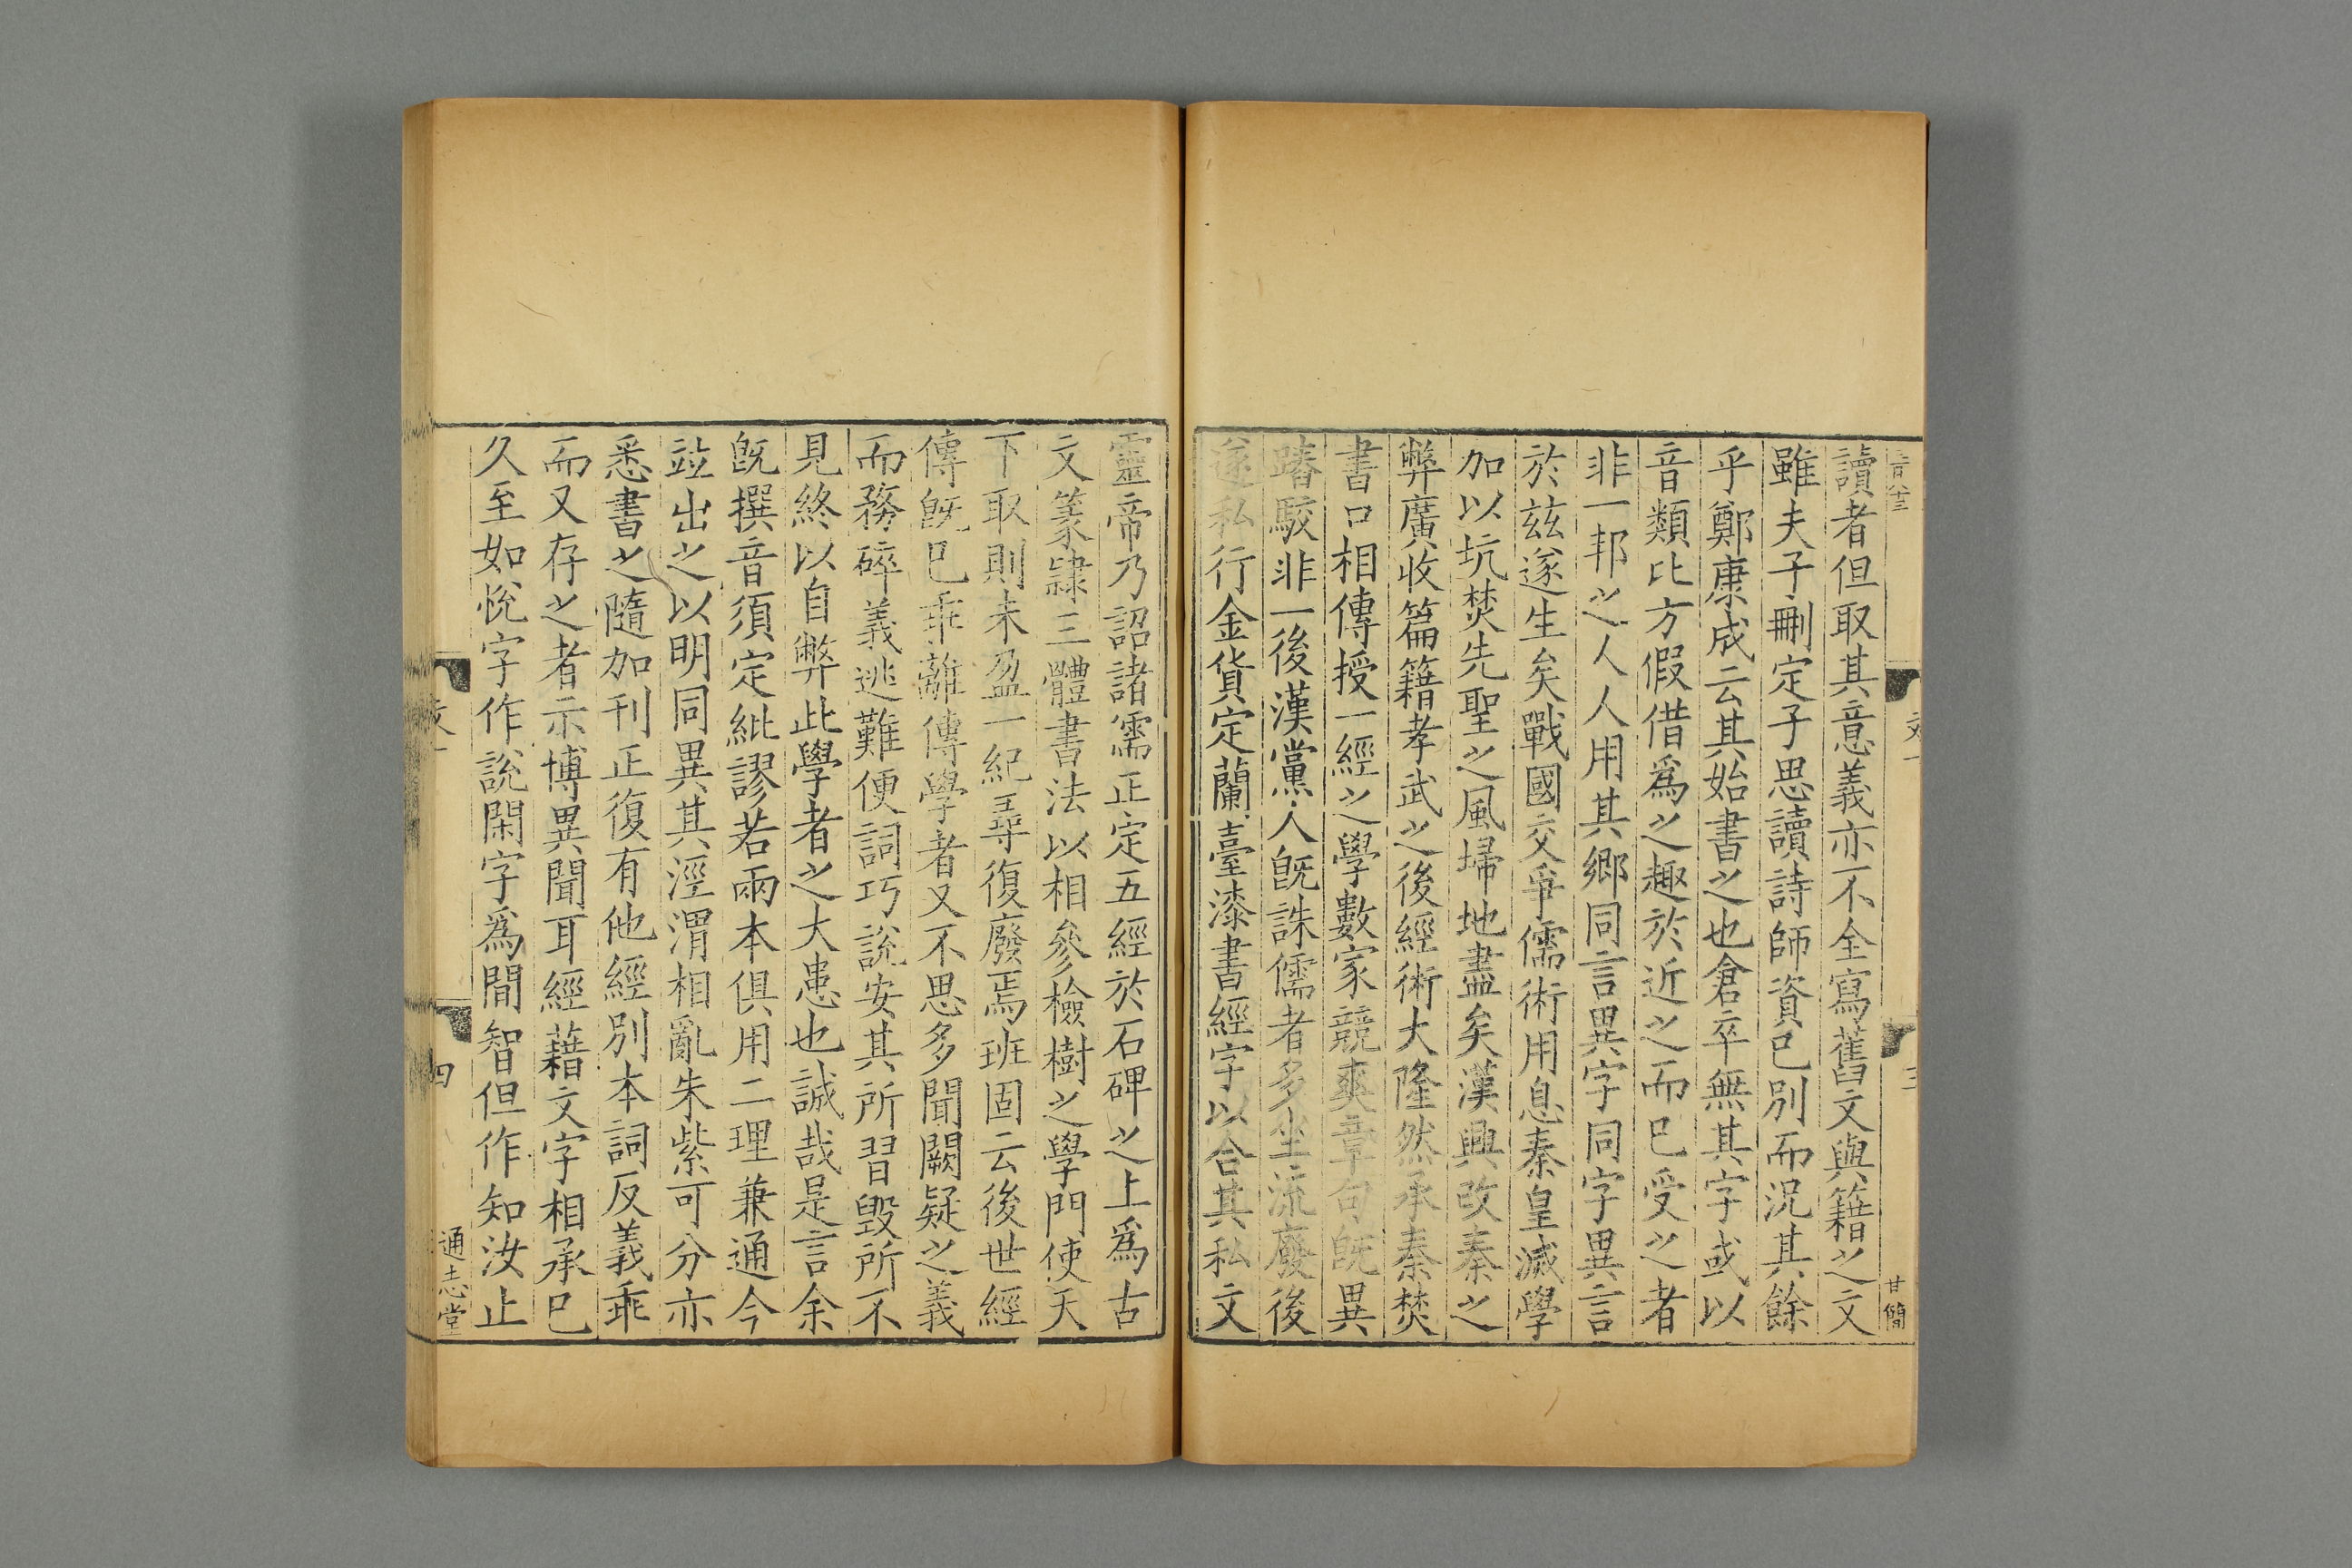 讀者但取其意義亦不全寫舊文與籍之文
雖夫子刪定子思讀詩師資已別而況其餘
乎鄭康成云其始書之也倉卒無其字或以
音類比方假借爲之趣於近之而已受之者
非一邦之人人用其鄉同言異字同字異言
於兹遂生矣戰國交爭儒術用息秦皇滅學
加以坑焚先聖之風埽地盡矣漢興改秦之
弊廣收篇籍孝武之後經術大隆然承秦焚
書口相傳授一經之學數家競爽章句旣異
踳駮非一後漢黨人旣誅儒者多坐流廢後
遂私行金貨定蘭臺漆書經字以合其私文
甘簡
靈帝乃詔諸儒正定五經於石碑之上爲古
文篆隷三體書法以相參檢樹之學門使天
下取則未盈一紀尋復廢焉班固云後世經
傳旣已乖離傳學者又不思多聞闕疑之義
而務碎義逃難便詞巧說安其所習毀所不
見終以自弊此學者之大患也誠哉是言余
旣撰音須定紕謬若兩本俱用二理兼通今
竝出之以明同異其涇渭相亂朱紫可分亦
悉書之隨加刊正復有他經別本詞反義乖
而又存之者示博異聞耳經藉文字相承已
久至如悅字作說閑字爲閒智但作知汝止
四
通志堂